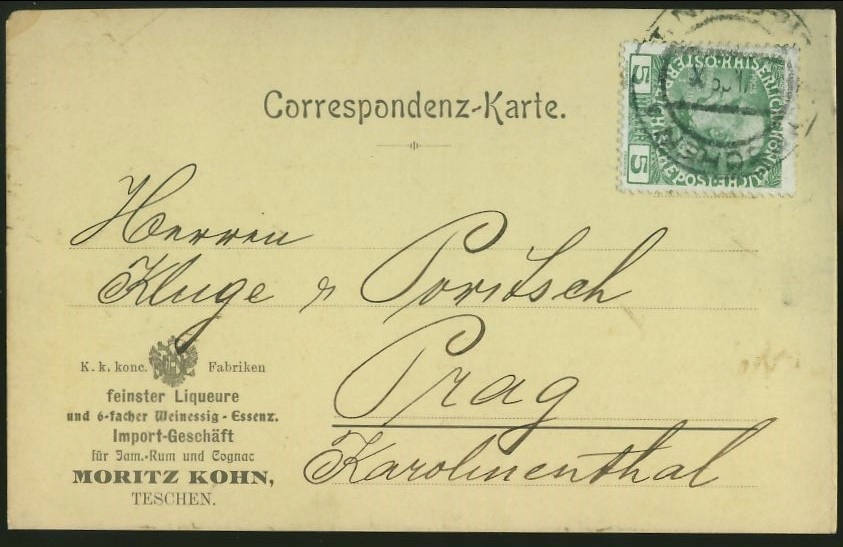 Correspondenz-Karte.
5 KAISERLICHE KÖNIGLICHE ÖSTERREICHISCHE POST 5
Herren
Kluge & Poritsch
Prag
Karolinenthal
K. k. konc. Fabriken
feinster Liqueure
und 6-facher Weinessig-Essenz.
Import-Geschäft
für Jam.-Rum und Cognac
MORITZ KOHN,
TESCHEN.